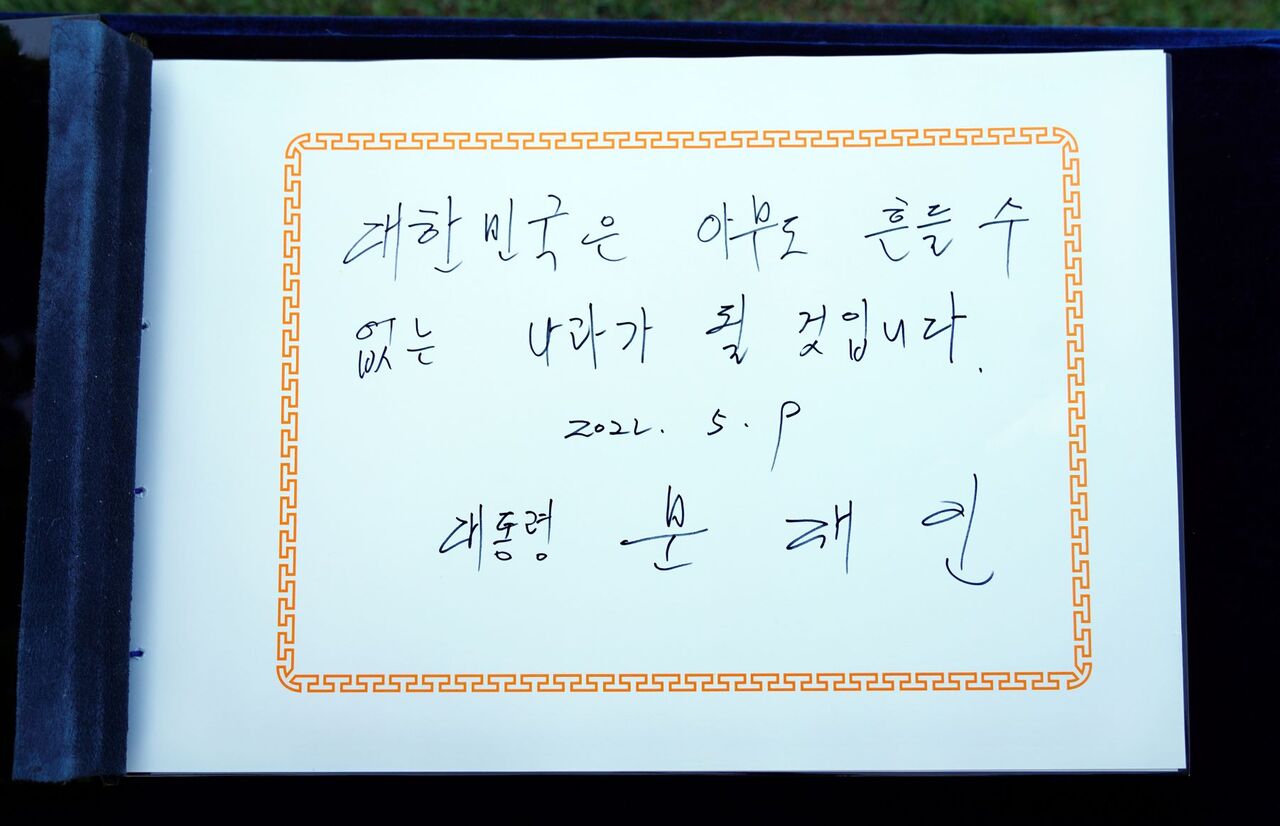 대한민국은 아무도 흔들 수
없는 나라가 될 것입니다.
2022. 5. 9
대통령 문재인